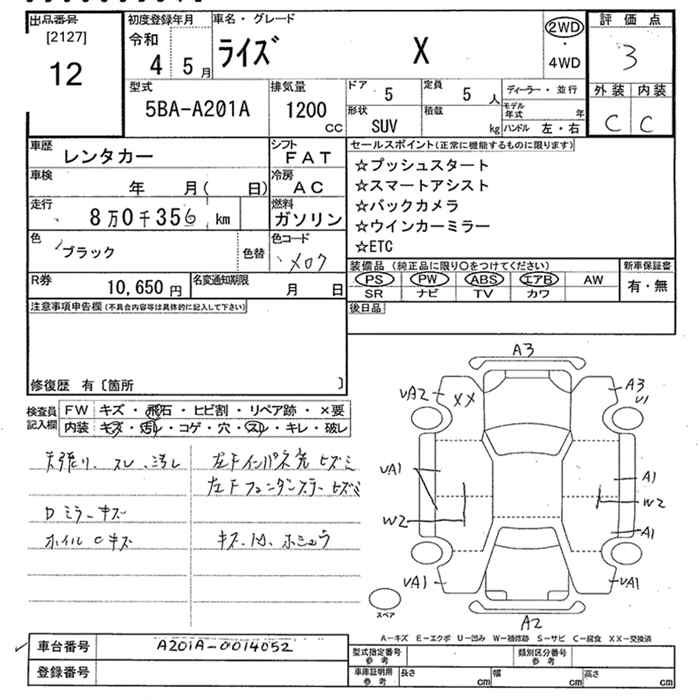 出品番号
[2127]
12
初度登録年月
令和
4 5月
車名・グレード
ライズ X
2WD
・
4WD
評価点
3
外装 内装
C C
型式
5BA-A201A
排気量
1200
CC
ドア
5
定員
5 人
形状
SUV
積載
kg
ディーラー・並行
モデル年式 年
ハンドル 左・右
車歴
レンタカー
シフト
FAT
車検
年 月( 日)
冷房
AC
走行
8万0千356 km
燃料
ガソリン
色
ブラック
色替
色コード
R券
10,650 円
名変通知期限
月 日
セールスポイント(正常に機能するものに限ります)
☆プッシュスタート
☆スマートアシスト
☆バックカメラ
☆ウインカーミラー
☆ETC
装備品 (純正品に限り○をつけてください)
PS PW ABS エアB AW
SR ナビ TV カワ
新車保証書
有・無
後日品
注意事項申告欄(不具合内容等は具体的に記入して下さい)
修復歴 有〔箇所 〕
検査員
記入欄
FW キズ・飛石・ヒビ割・リペア跡・×要
内装 キズ・汚レ・コゲ・穴・スレ・キレ・破レ
天張り、スレ、汚レ
Dミラーキズ
ホイルCキズ
左Fインパネ光ヒズミ
キズ・凹、ホシュウ
A3
UA2 XX
A3
U1
UA1
W2
A1
W2
A1
UA1
UA1
A2
スペア
A−キズ E−エクボ U−凹み W−補修跡 S−サビ C−腐食 XX−交換済
車台番号
A201A-0014052
登録番号
型式指定番号
参考
類別区分番号
参考
車庫証明用
参考
長さ cm 幅 cm 高さ cm